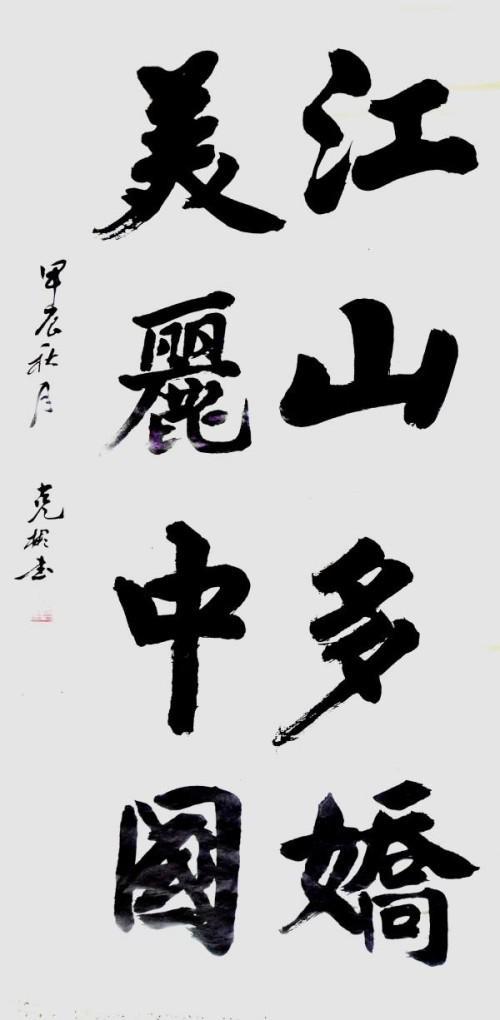 江山多嬌
美麗中國
甲辰秋月
克彬書